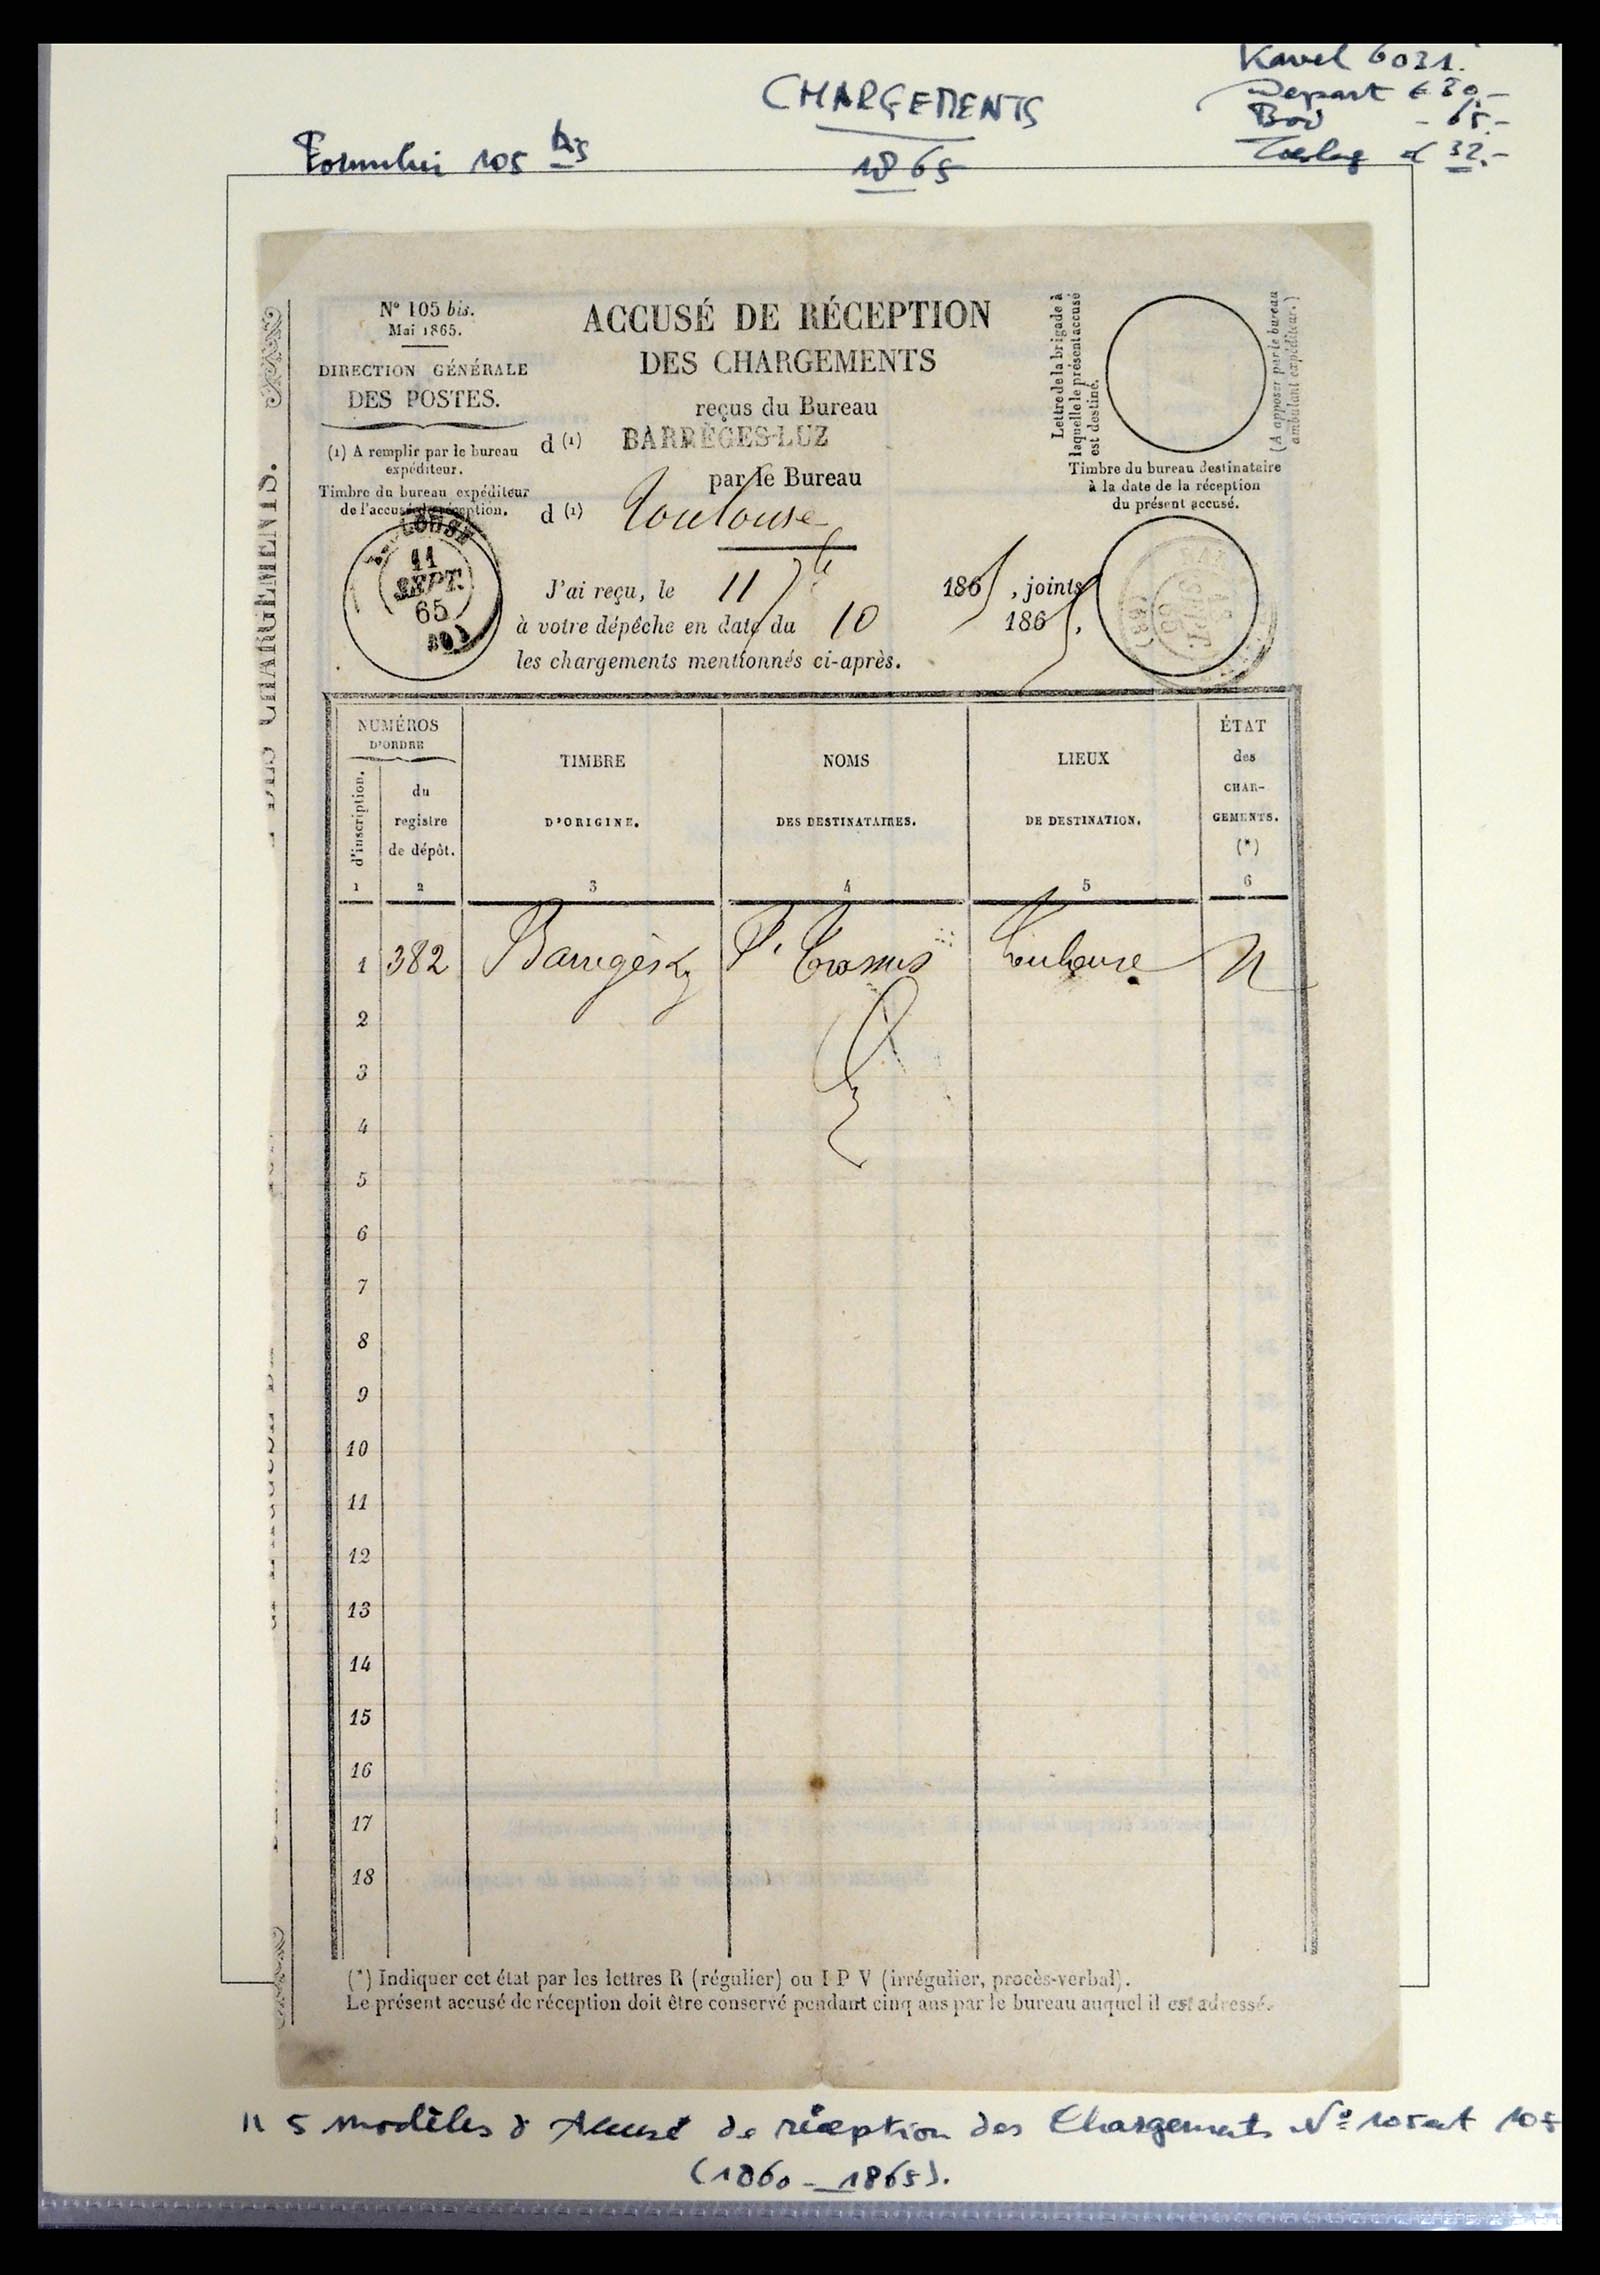 Kavel 6031.
CHARGEMENTS
Depart € 80,-
Bod - 65.-
Toeslag 32.-
105 bis
1865
N° 105 bis.
Mai 1865.
DIRECTION GÉNÉRALE
DES POSTES.
(1) A remplir par le bureau
expéditeur.
Timbre du bureau expéditeur
de l'accusé de réception.
TOULOUSE
11
SEPT.
65
(30)
ACCUSÉ DE RÉCEPTION
DES CHARGEMENTS
reçus du Bureau
d (1) BARRÈGES-LUZ
par le Bureau
d (1) Toulouse
J'ai reçu, le 11 7bre 1865, joints
à votre dépêche en date du 10 1865,
les chargements mentionnés ci-après.
Lettre de la brigade à
laquelle le présent accusé
est destiné.
(A apposer par le bureau
ambulant expéditeur.)
Timbre du bureau destinataire
à la date de la réception
du présent accusé.
SEPT.
65
DES CHARGEMENTS.
NUMÉROS
D'ORDRE
d'inscription.
du
registre
de dépôt.
TIMBRE
D'ORIGINE.
NOMS
DES DESTINATAIRES.
LIEUX
DE DESTINATION.
ÉTAT
des
CHAR-
GEMENTS.
(*)
1 2 3 4 5 6
1 382 Toulouse
2
3
4
5
6
7
8
9
10
11
12
13
14
15
16
17
18
(*) Indiquer cet état par les lettres R (régulier) ou I P V (irrégulier, procès-verbal).
Le présent accusé de réception doit être conservé pendant cinq ans par le bureau auquel il est adressé.
5 modèles d'Accusé de réception des Chargements N° 105 et 105
(1860 - 1865).